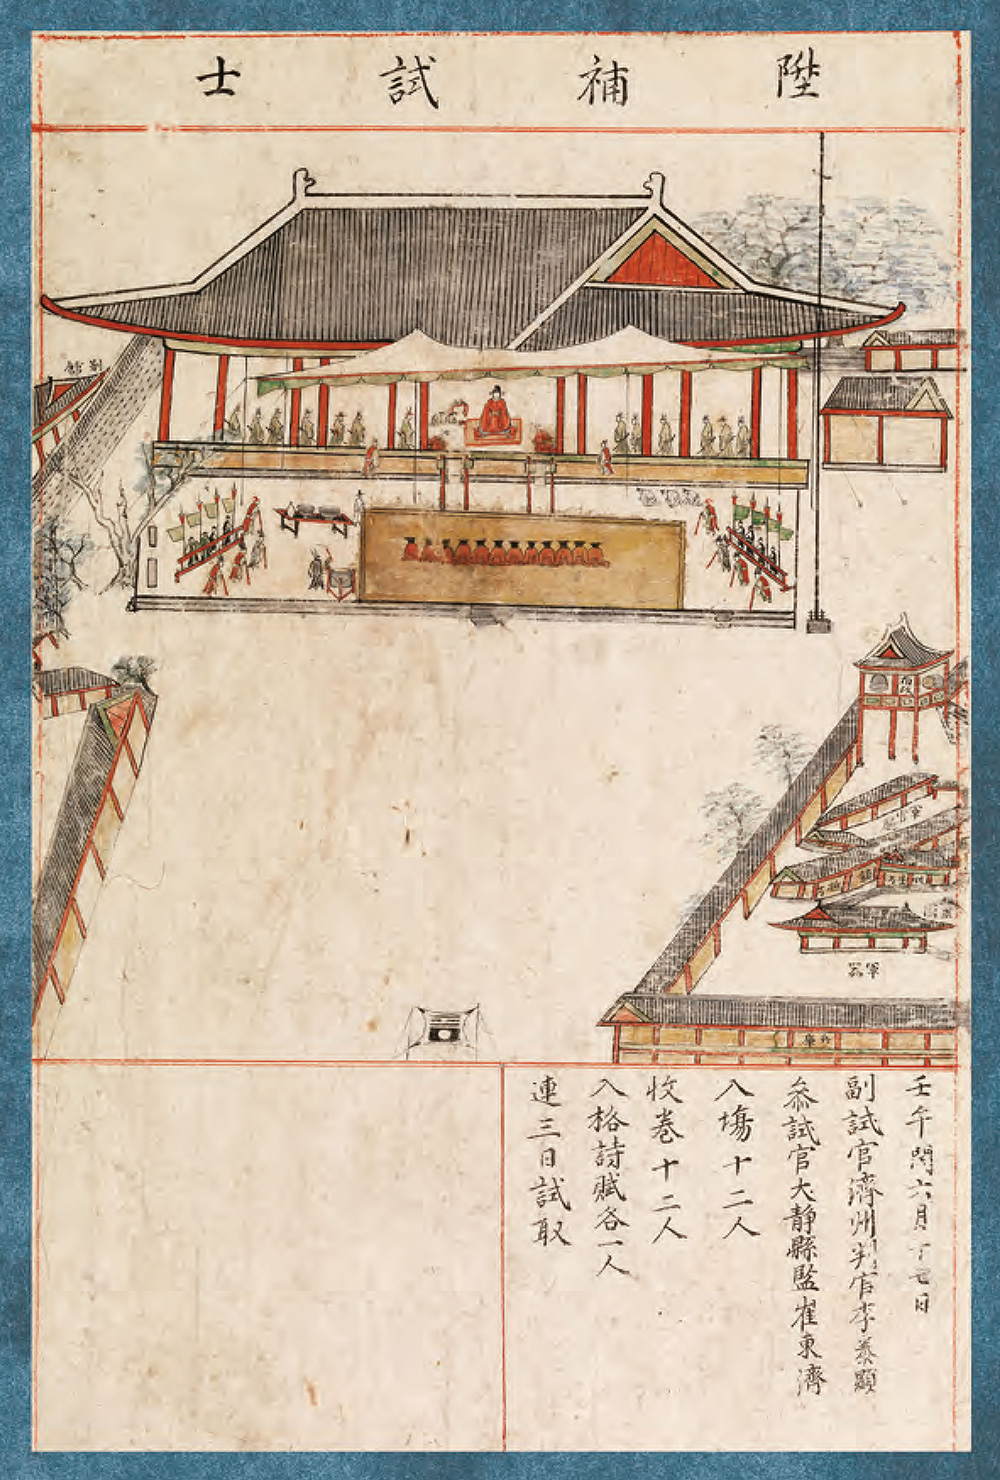 陞補試士
軍器
壬午閏六月十七日
副試官濟州判官李泰顯
叅試官大靜縣監崔東濟
入塲十二人
收卷十二人
入格詩賦各一人
連三日試取